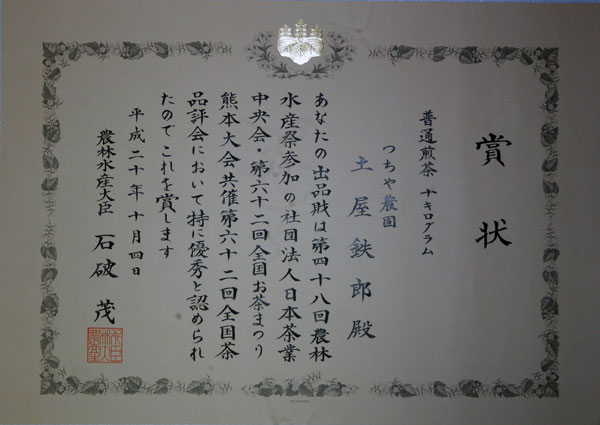 賞状
普通煎茶 十キログラム
つちや農園
土屋鉄郎殿
あなたの出品財は第四十八回農林
水産祭参加の社団法人日本茶業
中央会・第六十二回全国お茶まつり
熊本大会共催第六十二回全国茶
品評会において特に優秀と認められ
たのでこれを賞します
平成二十年十月四日
農林水産大臣 石破 茂